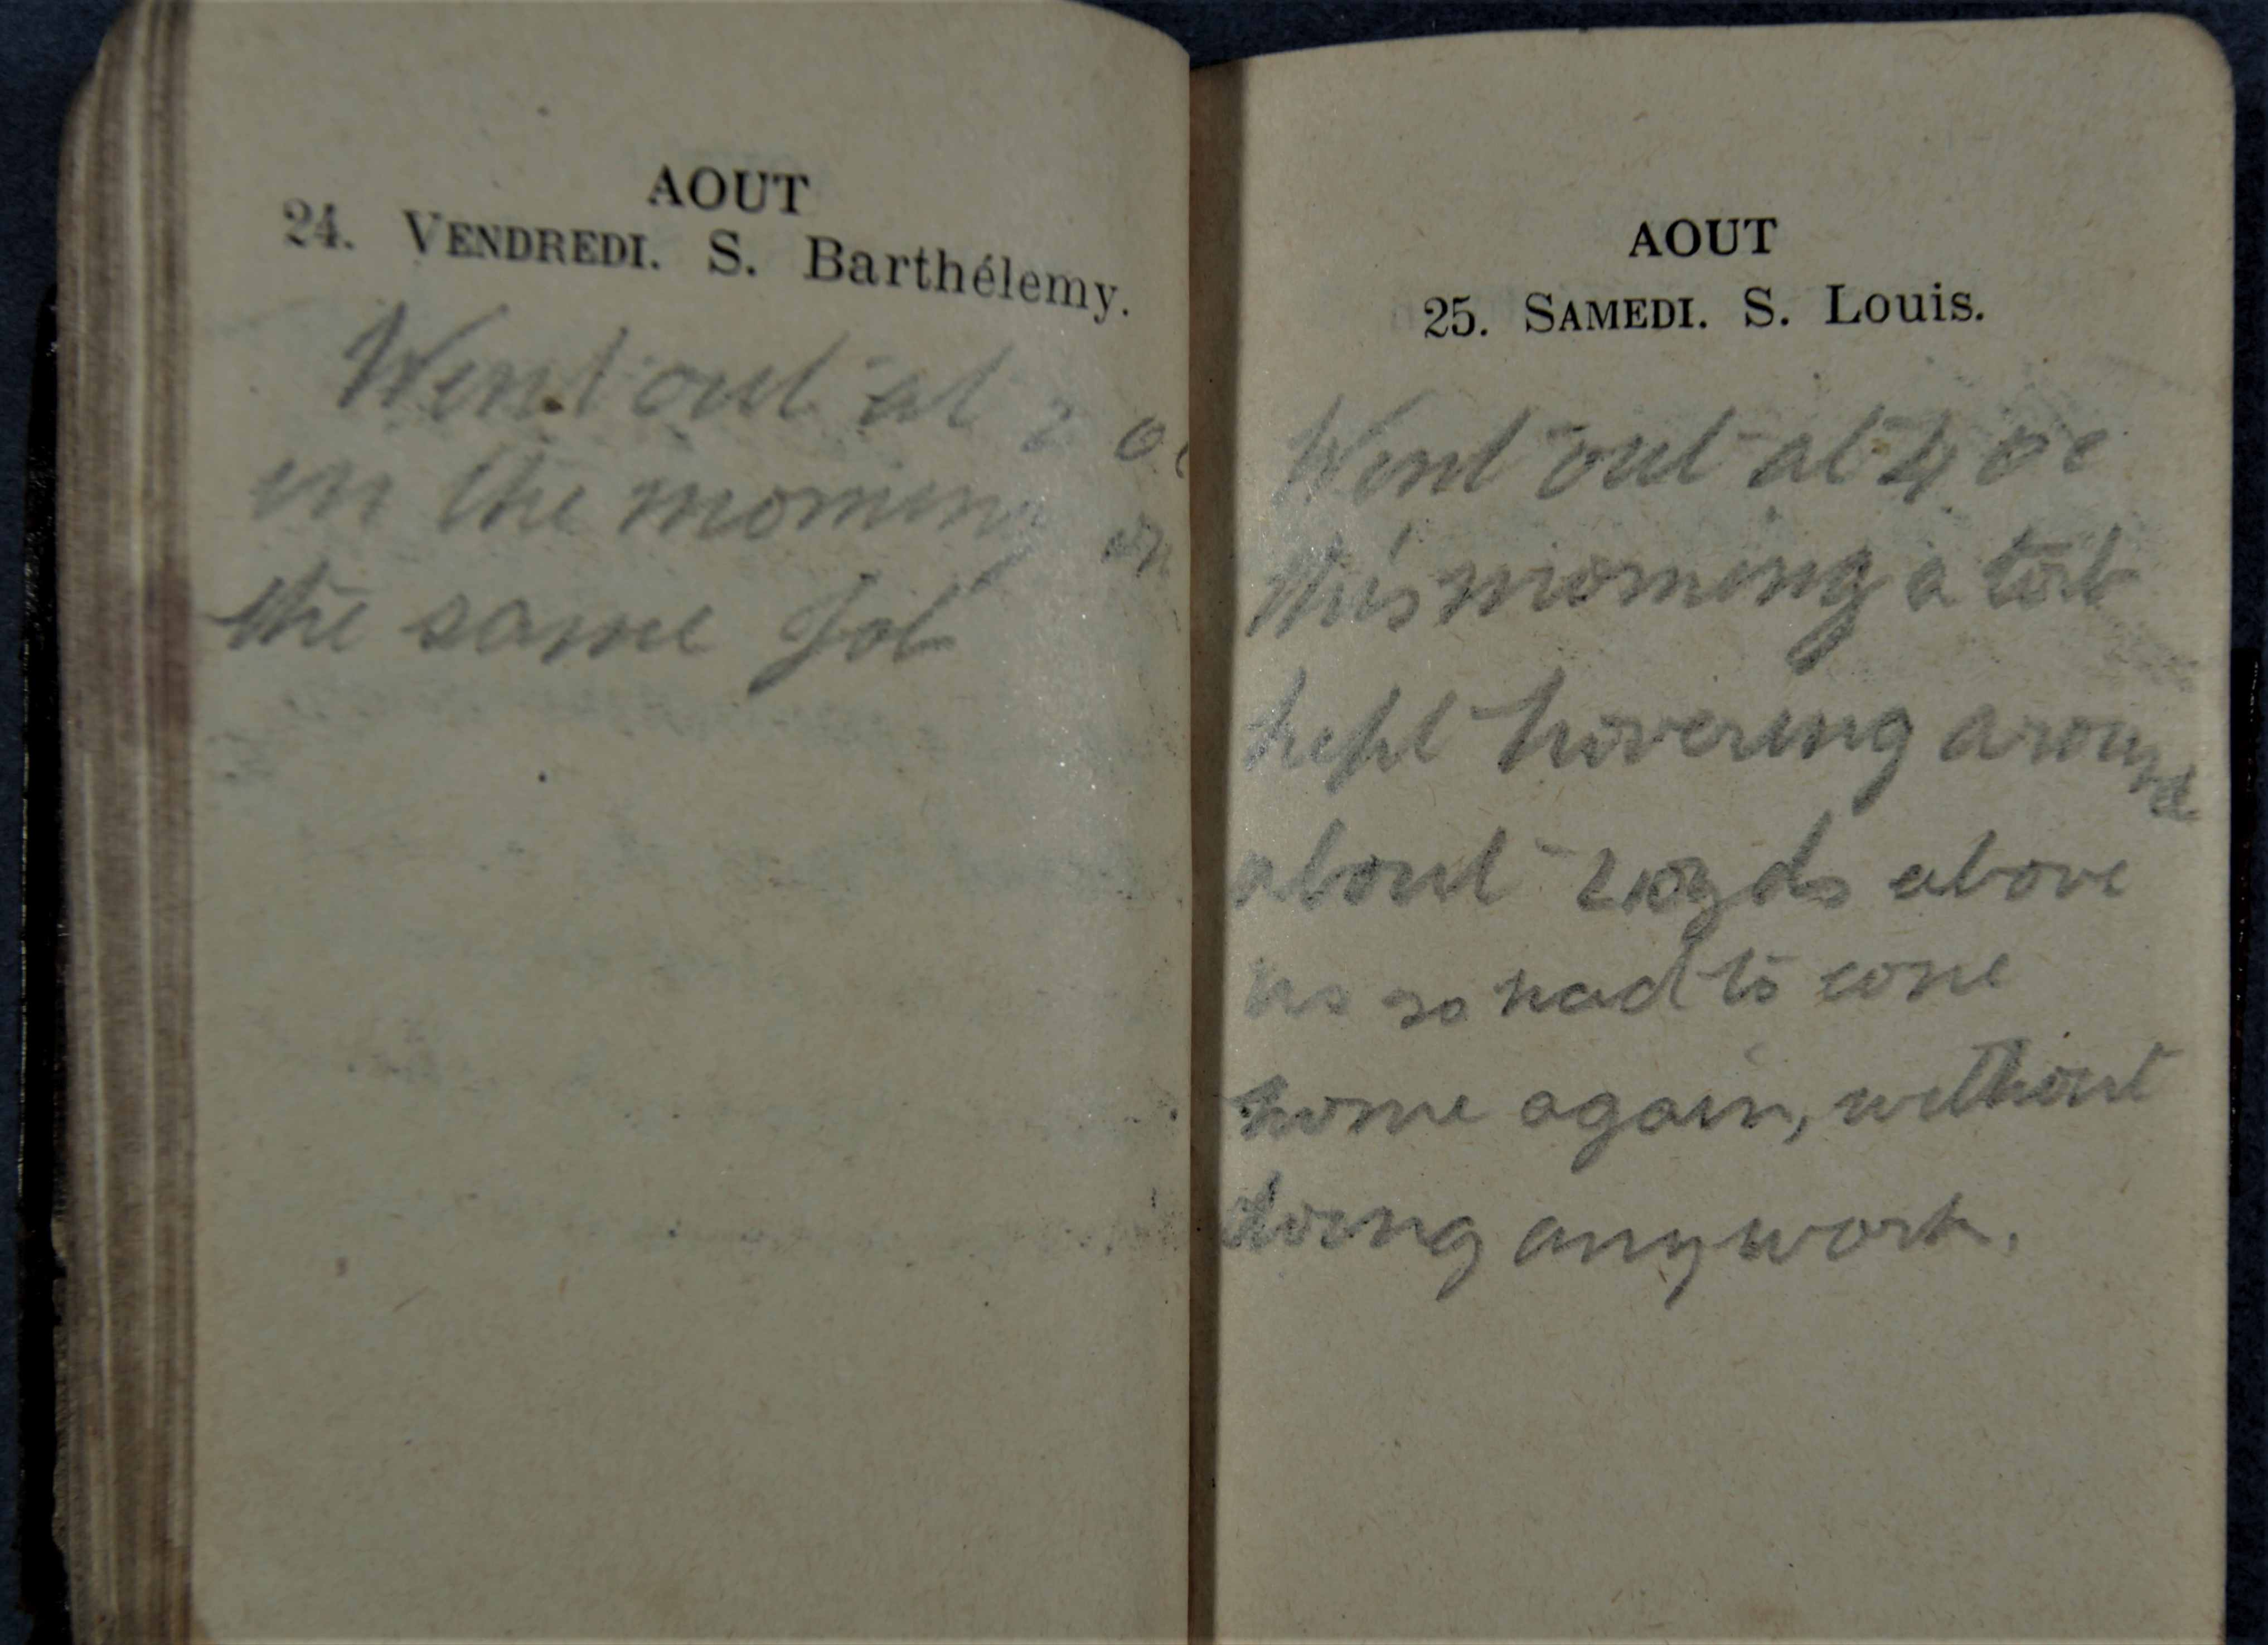 AOUT
24. VENDREDI. S. Barthélemy.
Went out at 2 oc
in the morning on
the same Job
AOUT
25. SAMEDI. S. Louis.
Went out at 4 oc
this morning a
kept hovering around
about yds above
us so had to come
home again, without
doing any work.